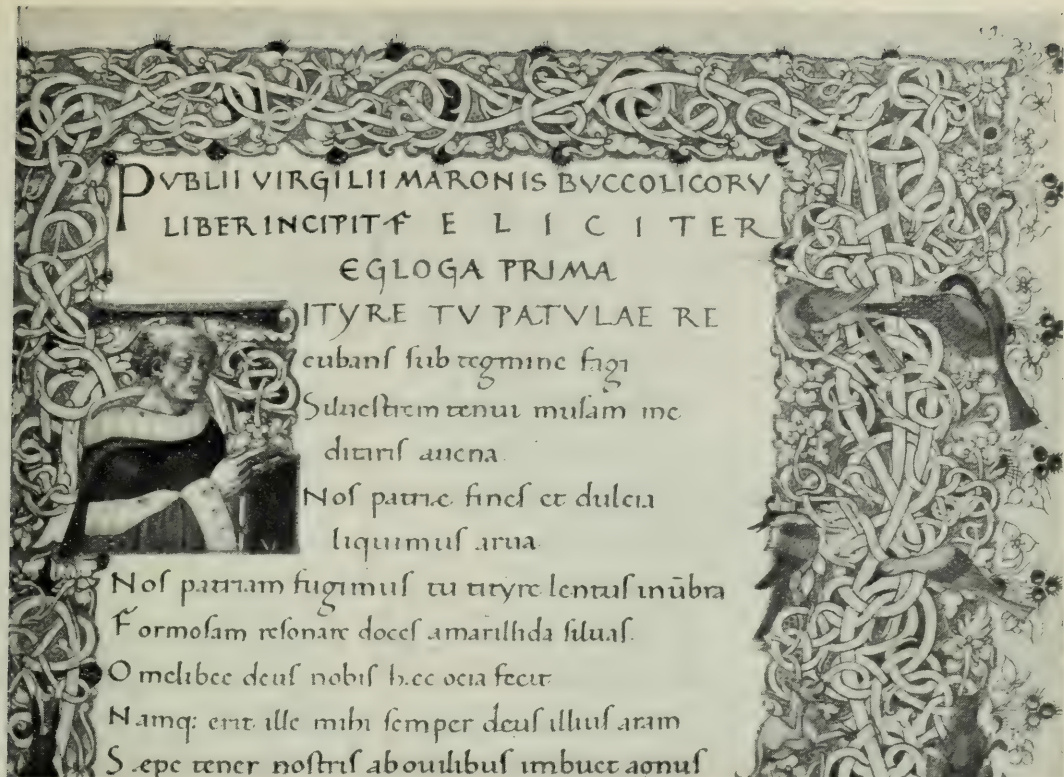 PVBLII VIRGILII MARONIS BVCCOLICORV
LIBER INCIPIT F E L I C I T E R
EGLOGA PRIMA
ITYRE TV PATVLAE RE
cubanſ ſub tegmine fagi
Silueſtrem tenui muſam me
ditariſ auena
Noſ patriæ fineſ et dulcia
liquimuſ arua
Noſ patriam fugimuſ tu tityre lentuſ inūbra
Formoſam reſonare doceſ amarillida ſiluaſ.
O melibee deuſ nobiſ hæc ocia fecit
Namq: erit ille mihi ſemper deuſ illiuſ aram
Sæpe tener noſtriſ ab ouilibuſ imbuet agnuſ